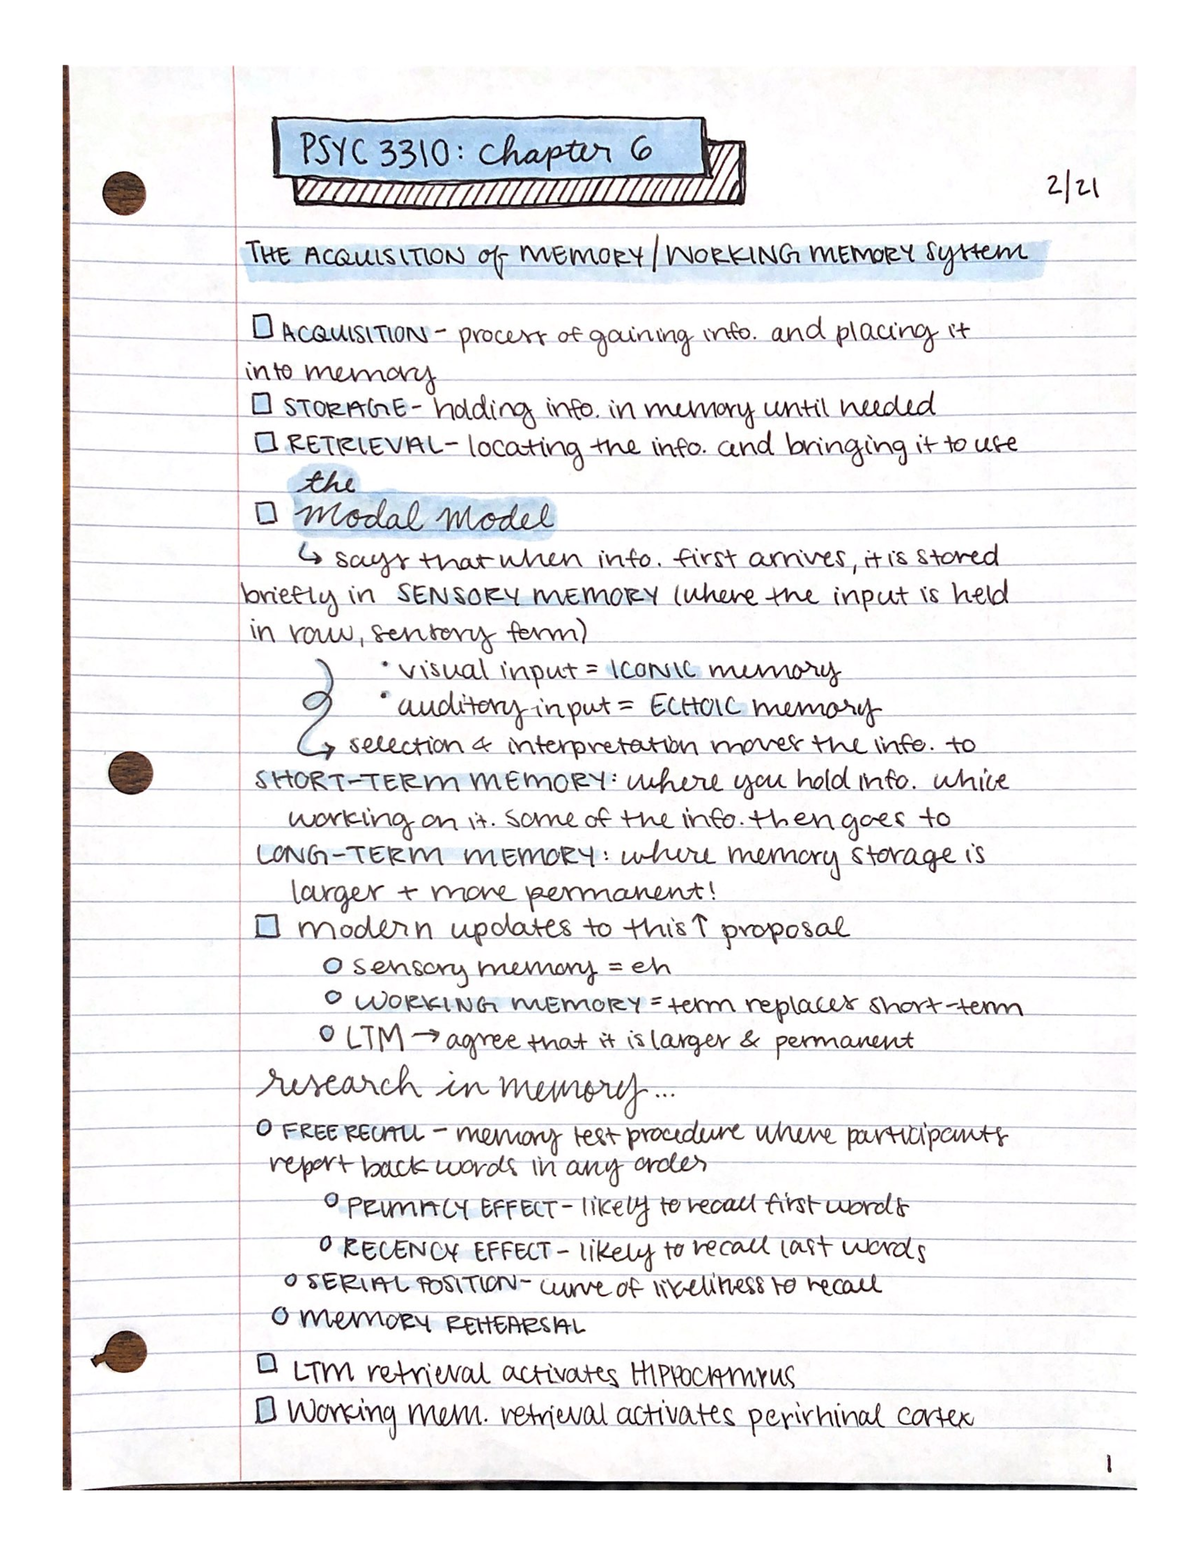 PSYC 3310: Chapter 6
2/21
THE ACQUISITION of MEMORY/WORKING MEMORY System
ACQUISITION - process of gaining info. and placing it
into memory
STORAGE - holding info. in memory until needed
RETRIEVAL - locating the info. and bringing it to use
the
Modal Model
↳ says that when info. first arrives, it is stored
briefly in SENSORY MEMORY (where the input is held
in raw, sensory form)
• visual input = ICONIC memory
• auditory input = ECHOIC memory
→ selection & interpretation moves the info. to
SHORT-TERM MEMORY: where you hold info. while
working on it. Some of the info. then goes to
LONG-TERM MEMORY: where memory storage is
larger + more permanent!
modern updates to this↑ proposal
sensory memory = eh
WORKING MEMORY = term replaces short-term
LTM → agree that it is larger & permanent
research in memory...
FREE RECALL - memory test procedure where participants
report back words in any order
PRIMACY EFFECT - likely to recall first words
RECENCY EFFECT - likely to recall last words
SERIAL POSITION - curve of likeliness to recall
MEMORY REHEARSAL
LTM retrieval activates HIPPOCAMPUS
Working mem. retrieval activates perirhinal cortex
1